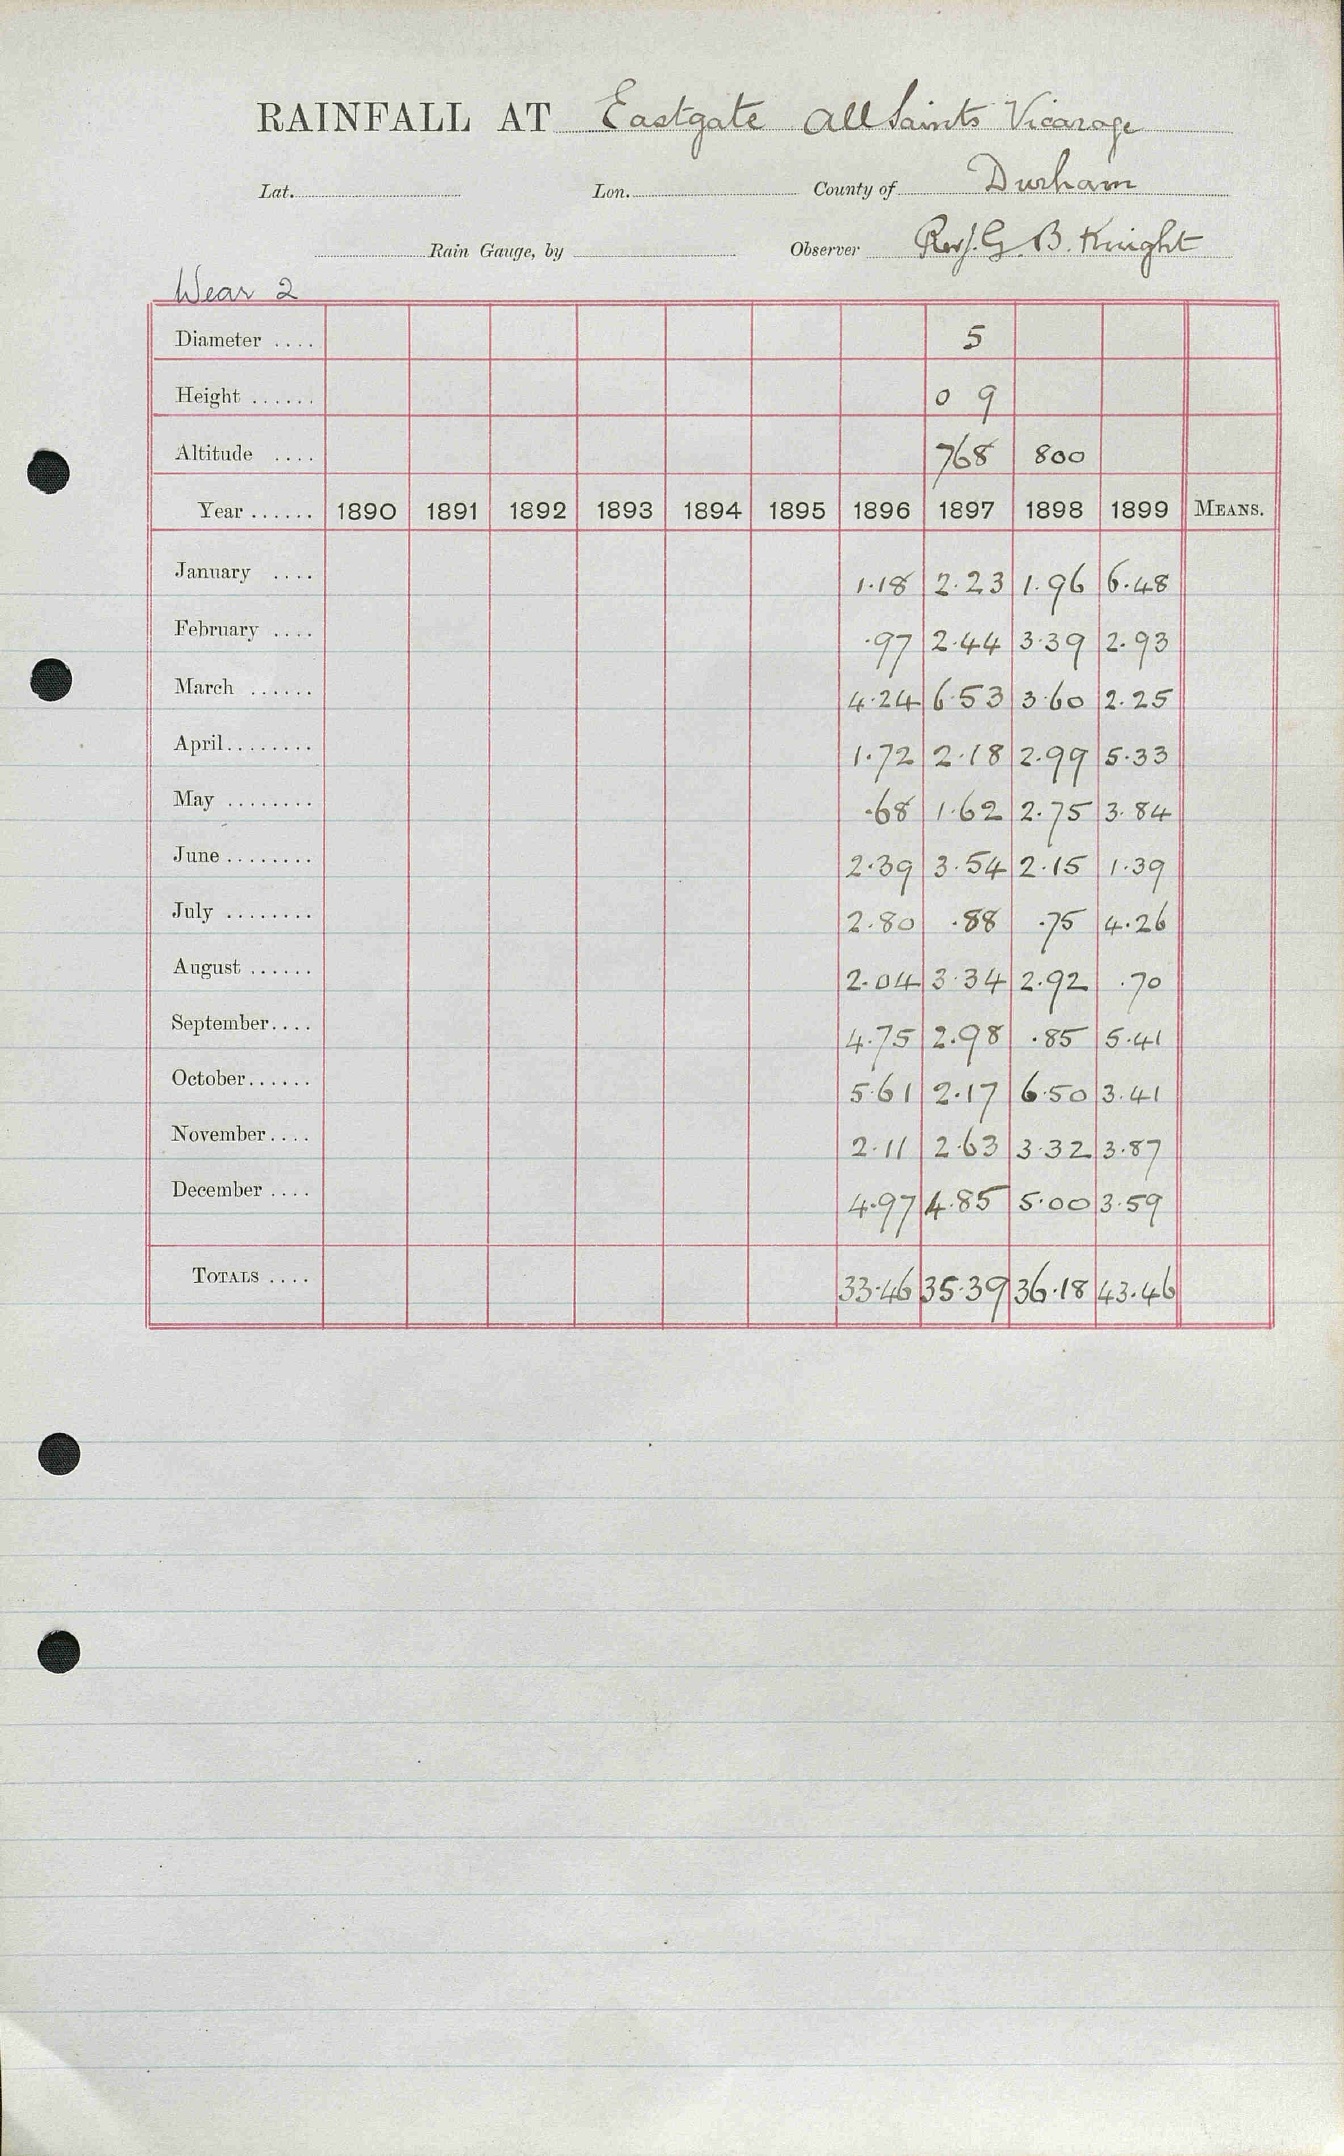 RAINFALL AT Eastgate All Saints Vicarage
Lat. Lon. County of Durham
Rain Gauge, by Observer Rev. J. G. B. Knight
Wear 2
Diameter .... 5
Height ...... 0 9
Altitude .... 768 800
Year ...... 1890 1891 1892 1893 1894 1895 1896 1897 1898 1899 MEANS.
January .... 1.18 2.23 1.96 6.48
February .... .97 2.44 3.39 2.93
March ...... 4.24 6.53 3.60 2.25
April........ 1.72 2.18 2.99 5.33
May ........ .68 1.62 2.75 3.84
June ........ 2.39 3.54 2.15 1.39
July ........ 2.80 .88 .75 4.26
August ...... 2.04 3.34 2.92 .70
September.... 4.75 2.98 .85 5.41
October...... 5.61 2.17 6.50 3.41
November.... 2.11 2.63 3.32 3.87
December .... 4.97 4.85 5.00 3.59
TOTALS .... 33.46 35.39 36.18 43.46